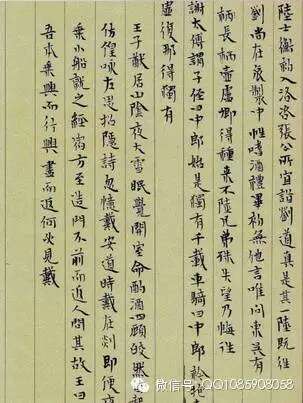 陸士衡初入洛咨張公所宜詣劉道真是其一陸既往
劉尚在哀製中性嗜酒禮畢初無他言唯問東吳有
柄長柄壺盧卿得種來不陸兄弟殊失望乃悔往
謝太傅謂子姪曰中郎始是獨有千載車騎曰中郎衿抱
虛復那得獨有
王子猷居山陰夜大雪眠覺開室命酌酒四顧皎然起
彷徨詠左思招隱詩忽憶戴安道時戴在剡即便夜
乘小船就之經宿方至造門不前而返人問其故王曰
吾本乘興而行興盡而返何必見戴
微信号: QQ1085908058